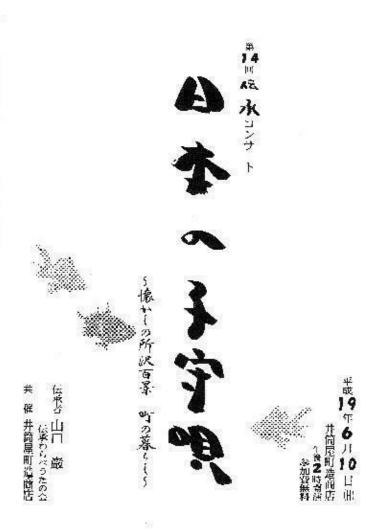 第14回伝承コンサート
日本の子守唄
～懐かしの所沢百景 町の暮らし～
平成19年6月10日(日)
井筒屋町造商店
午後2時開演
参加費無料
伝承者 山口 巌
伝承わらべうたの会
共催 井筒屋町造商店